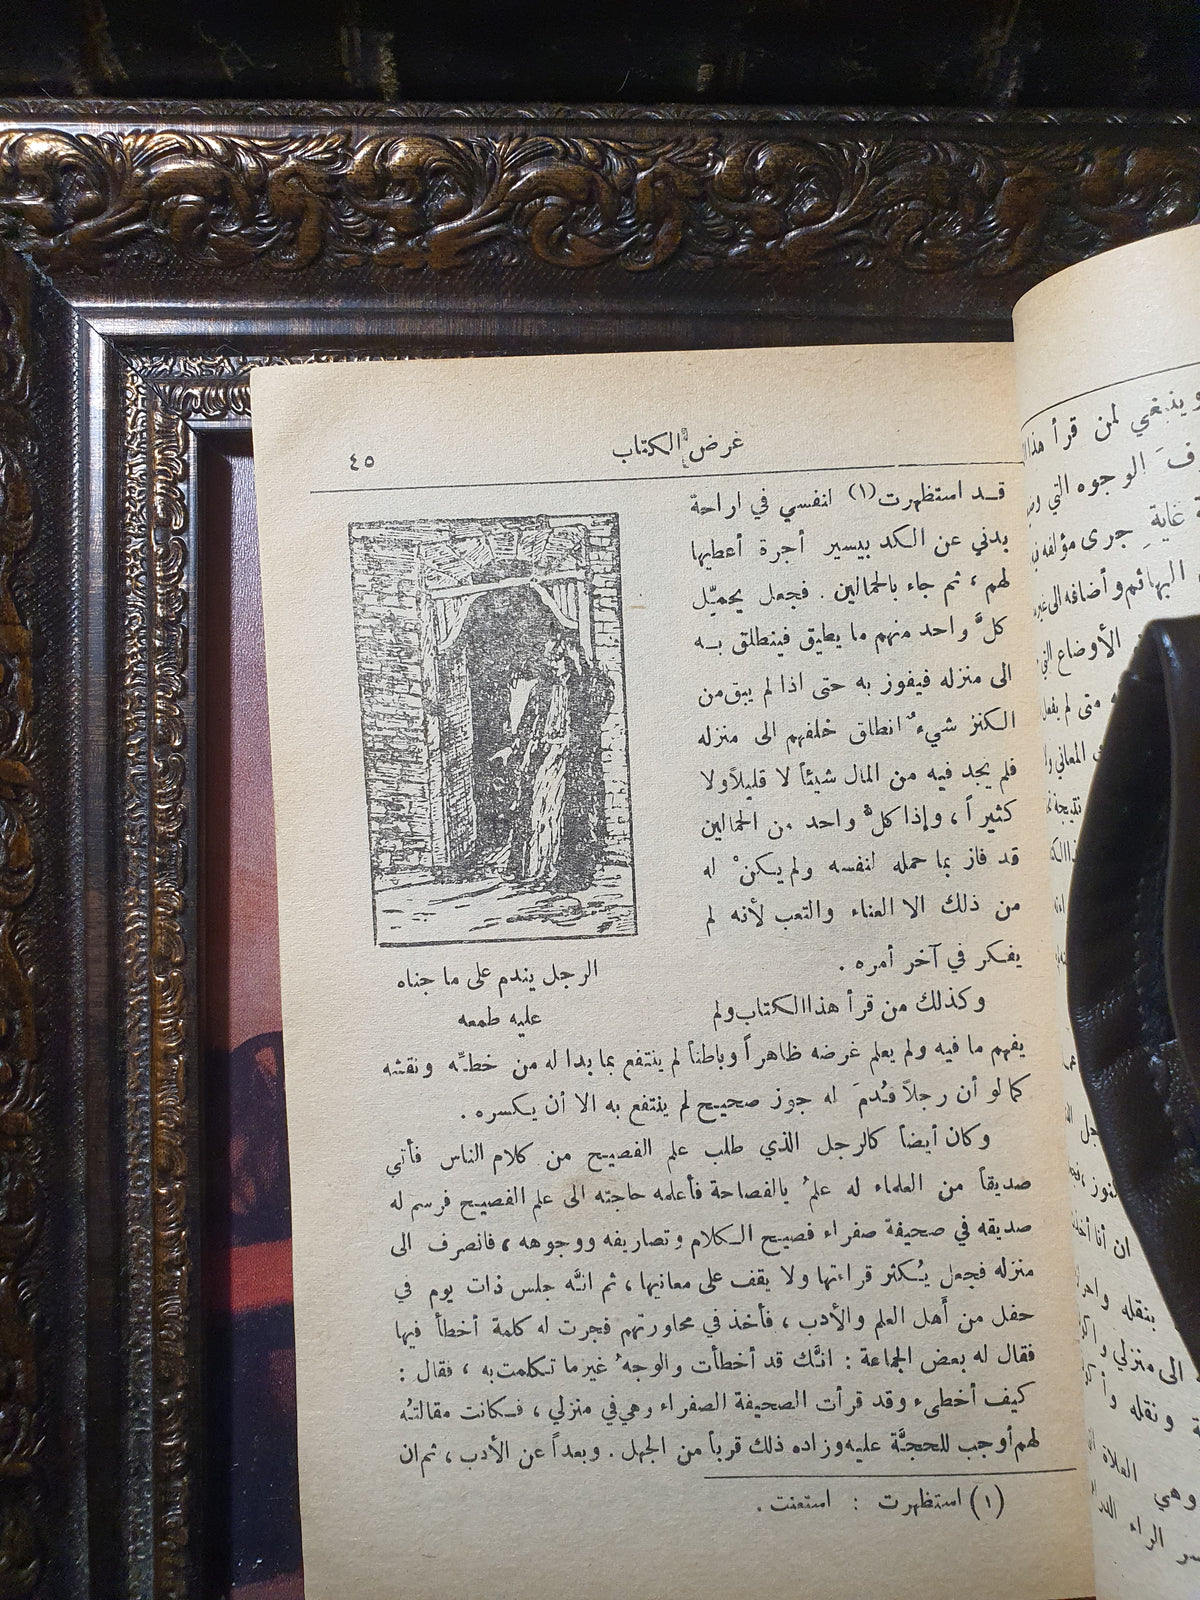 غرض الكتاب
٤٥
قد استظهرت (١) لنفسي في اراحة
بدني عن الكد بيسير أجرة أعطيها
لهم ، ثم جاء بالحمالين . فجعل يحمّل
كلَّ واحد منهم ما يطيق فينطلق به
الى منزله فيفوز به حتى اذا لم يبق من
الكنز شيءٌ انطلق خلفهم الى منزله
فلم يجد فيه من المال شيئاً لا قليلاً ولا
كثيراً ، وإذا كلُّ واحد من الحمالين
قد فاز بما حمله لنفسه ولم يكنْ له
من ذلك الا العناء والتعب لأنه لم
يفكر في آخر أمره .
الرجل يندم على ما جناه
عليه طمعه
وكذلك من قرأ هذا الكتاب ولم
يفهم ما فيه ولم يعلم غرضه ظاهراً وباطناً لم ينتفع بما بدا له من خطّه ونقشه
كما لو أن رجلاً قُدمَ له جوز صحيح لم ينتفع به الا أن يكسره .
وكان أيضاً كالرجل الذي طلب علم الفصيح من كلام الناس فأتي
صديقاً من العلماء له علمُ بالفصاحة فأعلمه حاجته الى علم الفصيح فرسم له
صديقه في صحيفة صفراء فصيح الكلام وتصاريفه ووجوهه ، فانصرف الى
منزله فجعل يُكثر قراءتها ولا يقف على معانيها ، ثم انَّه جلس ذات يوم في
حفل من أهل العلم والأدب ، فأخذ في محاورتهم فجرت له كلمة أخطأ فيها
فقال له بعض الجماعة : انَّك قد أخطأت والوجهُ غير ما تكلمت به ، فقال :
كيف أخطىء وقد قرأت الصحيفة الصفراء وهي في منزلي ، فكانت مقالتهُ
لهم أوجب للحجَّة عليه وزاده ذلك قرباً من الجهل . وبعداً عن الأدب ، ثم ان
(١) استظهرت : استعنت .
وينبغي لمن قرأ هذا
الوجوه التي
غايةٍ جرى مؤلفه
البهائم وأضافه الى
الأوضاع التي
متى لم يفعل
المعاني
نتيجة
ان أنا
بنقله
الى منزلي
ونقله
وهي
الراء